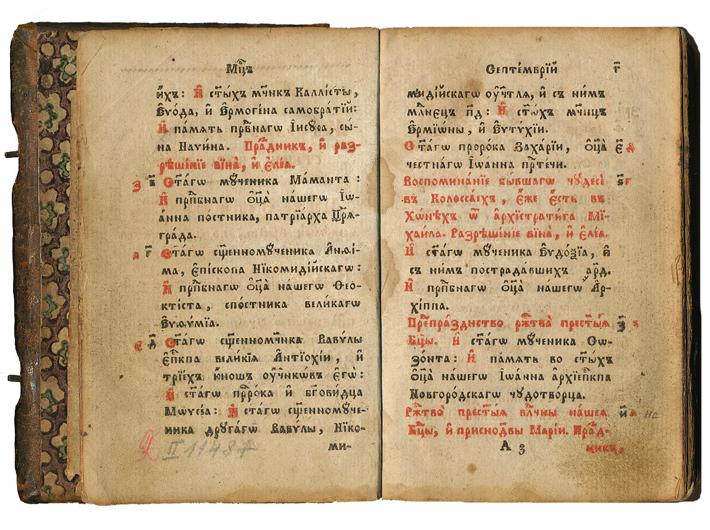 Мц҃ъ
и҆́хъ: И҆ ст҃ы́хъ мч҃нкъ Каллі́сты,
Е҆ѵо́да, и҆ Е҆рмоге́на самобра́тїи:
И҆ па́мять прⷣбнагѡ І҆исꙋ́са, сы́-
на Наѵи́на. Пра́здник, и҆ раз-
рѣше́нїе вїна̀, и҆ є҆ле́а.
з҃ в҃ Ст҃а́гѡ мч҃еника Ма́манта:
И҆ прпⷣбнагѡ ѻ҆ц҃а̀ на́шегѡ І҆ѡ-
а́нна по́стника, патрїа́рха Цр҃я-
гра́да.
а҃ г҃ Ст҃а́гѡ сщ҃енномч҃еника А҆нѳі́-
ма, є҆пі́скопа Нїкомиді́йскагѡ:
И҆ прпⷣбнагѡ ѻ҆ц҃а̀ на́шегѡ Ѳео-
кті́ста, спо́стника вели́кагѡ
Е҆ѵѳѵ́мїа.
є҃ д҃ Ст҃а́гѡ сщ҃енномч҃нка Вавѵ́лы
є҆пⷭ҇кпа вели́кїѧ А҆нтїохі́и, и҆
трїе́хъ ю҆́ношъ ᲂу҆ч҃нкѡ́въ є҆гѡ̀:
И҆ ст҃а́гѡ прⷪ҇ро́ка и҆ бг҃ови́дца
Мѡѵсе́а: И҆ ст҃а́гѡ сщ҃енномч҃е-
ника дрꙋга́гѡ Вавѵ́лы, Нїко-
ми-
II 11487
Септе́мврїй г҃
миді́йскагѡ ᲂу҆ч҃тлѧ, и҆ съ ни́мъ
мл҃не́цъ п҃д: И҆ ст҃ы́хъ мч҃ницъ
Е҆рмїѡ́ны, и҆ Е҆ѵтѵхі́и.
Ст҃а́гѡ проро́ка Заха́рїи, ѻ҆ц҃а̀ є҃
че́стнагѡ І҆ѡа́нна прⷣте́чи.
Воспомина́нїе бы́вшагѡ чꙋдесѐ ѕ҃
въ Колосса́ехъ, є҆́же є҆́сть въ
Хѡ́нѣхъ ѿ а҆рхїстрати́га Мї-
хаи́ла. Разрѣше́нїе вїна̀, и҆ є҆ле́а.
И҆ ст҃а́гѡ мч҃еника Е҆ѵдо́ѯїа, и҆
съ ни́мъ пострада́вшихъ а҂рд.
И҆ прпⷣбнагѡ ѻ҆ц҃а̀ на́шегѡ А҆р-
хі́ппа.
Пре́дпра́зднство ржⷭ҇тва̀ прест҃ы́ѧ з҃
Бц҃ы. И҆ ст҃а́гѡ мч҃еника Сѡ-
зо́нта: И҆ па́мять во ст҃ы́хъ
ѻ҆ц҃а̀ на́шегѡ І҆ѡа́нна а҆рхїєпⷭ҇кпа
Новгоро́дскагѡ чꙋдотво́рца.
Ржⷭ҇тво̀ прест҃ы́ѧ вл҃чцы на́шеѧ и҃
Бц҃ы, и҆ приснодв҃ы Марі́и. Пра́зд-
А з никъ,